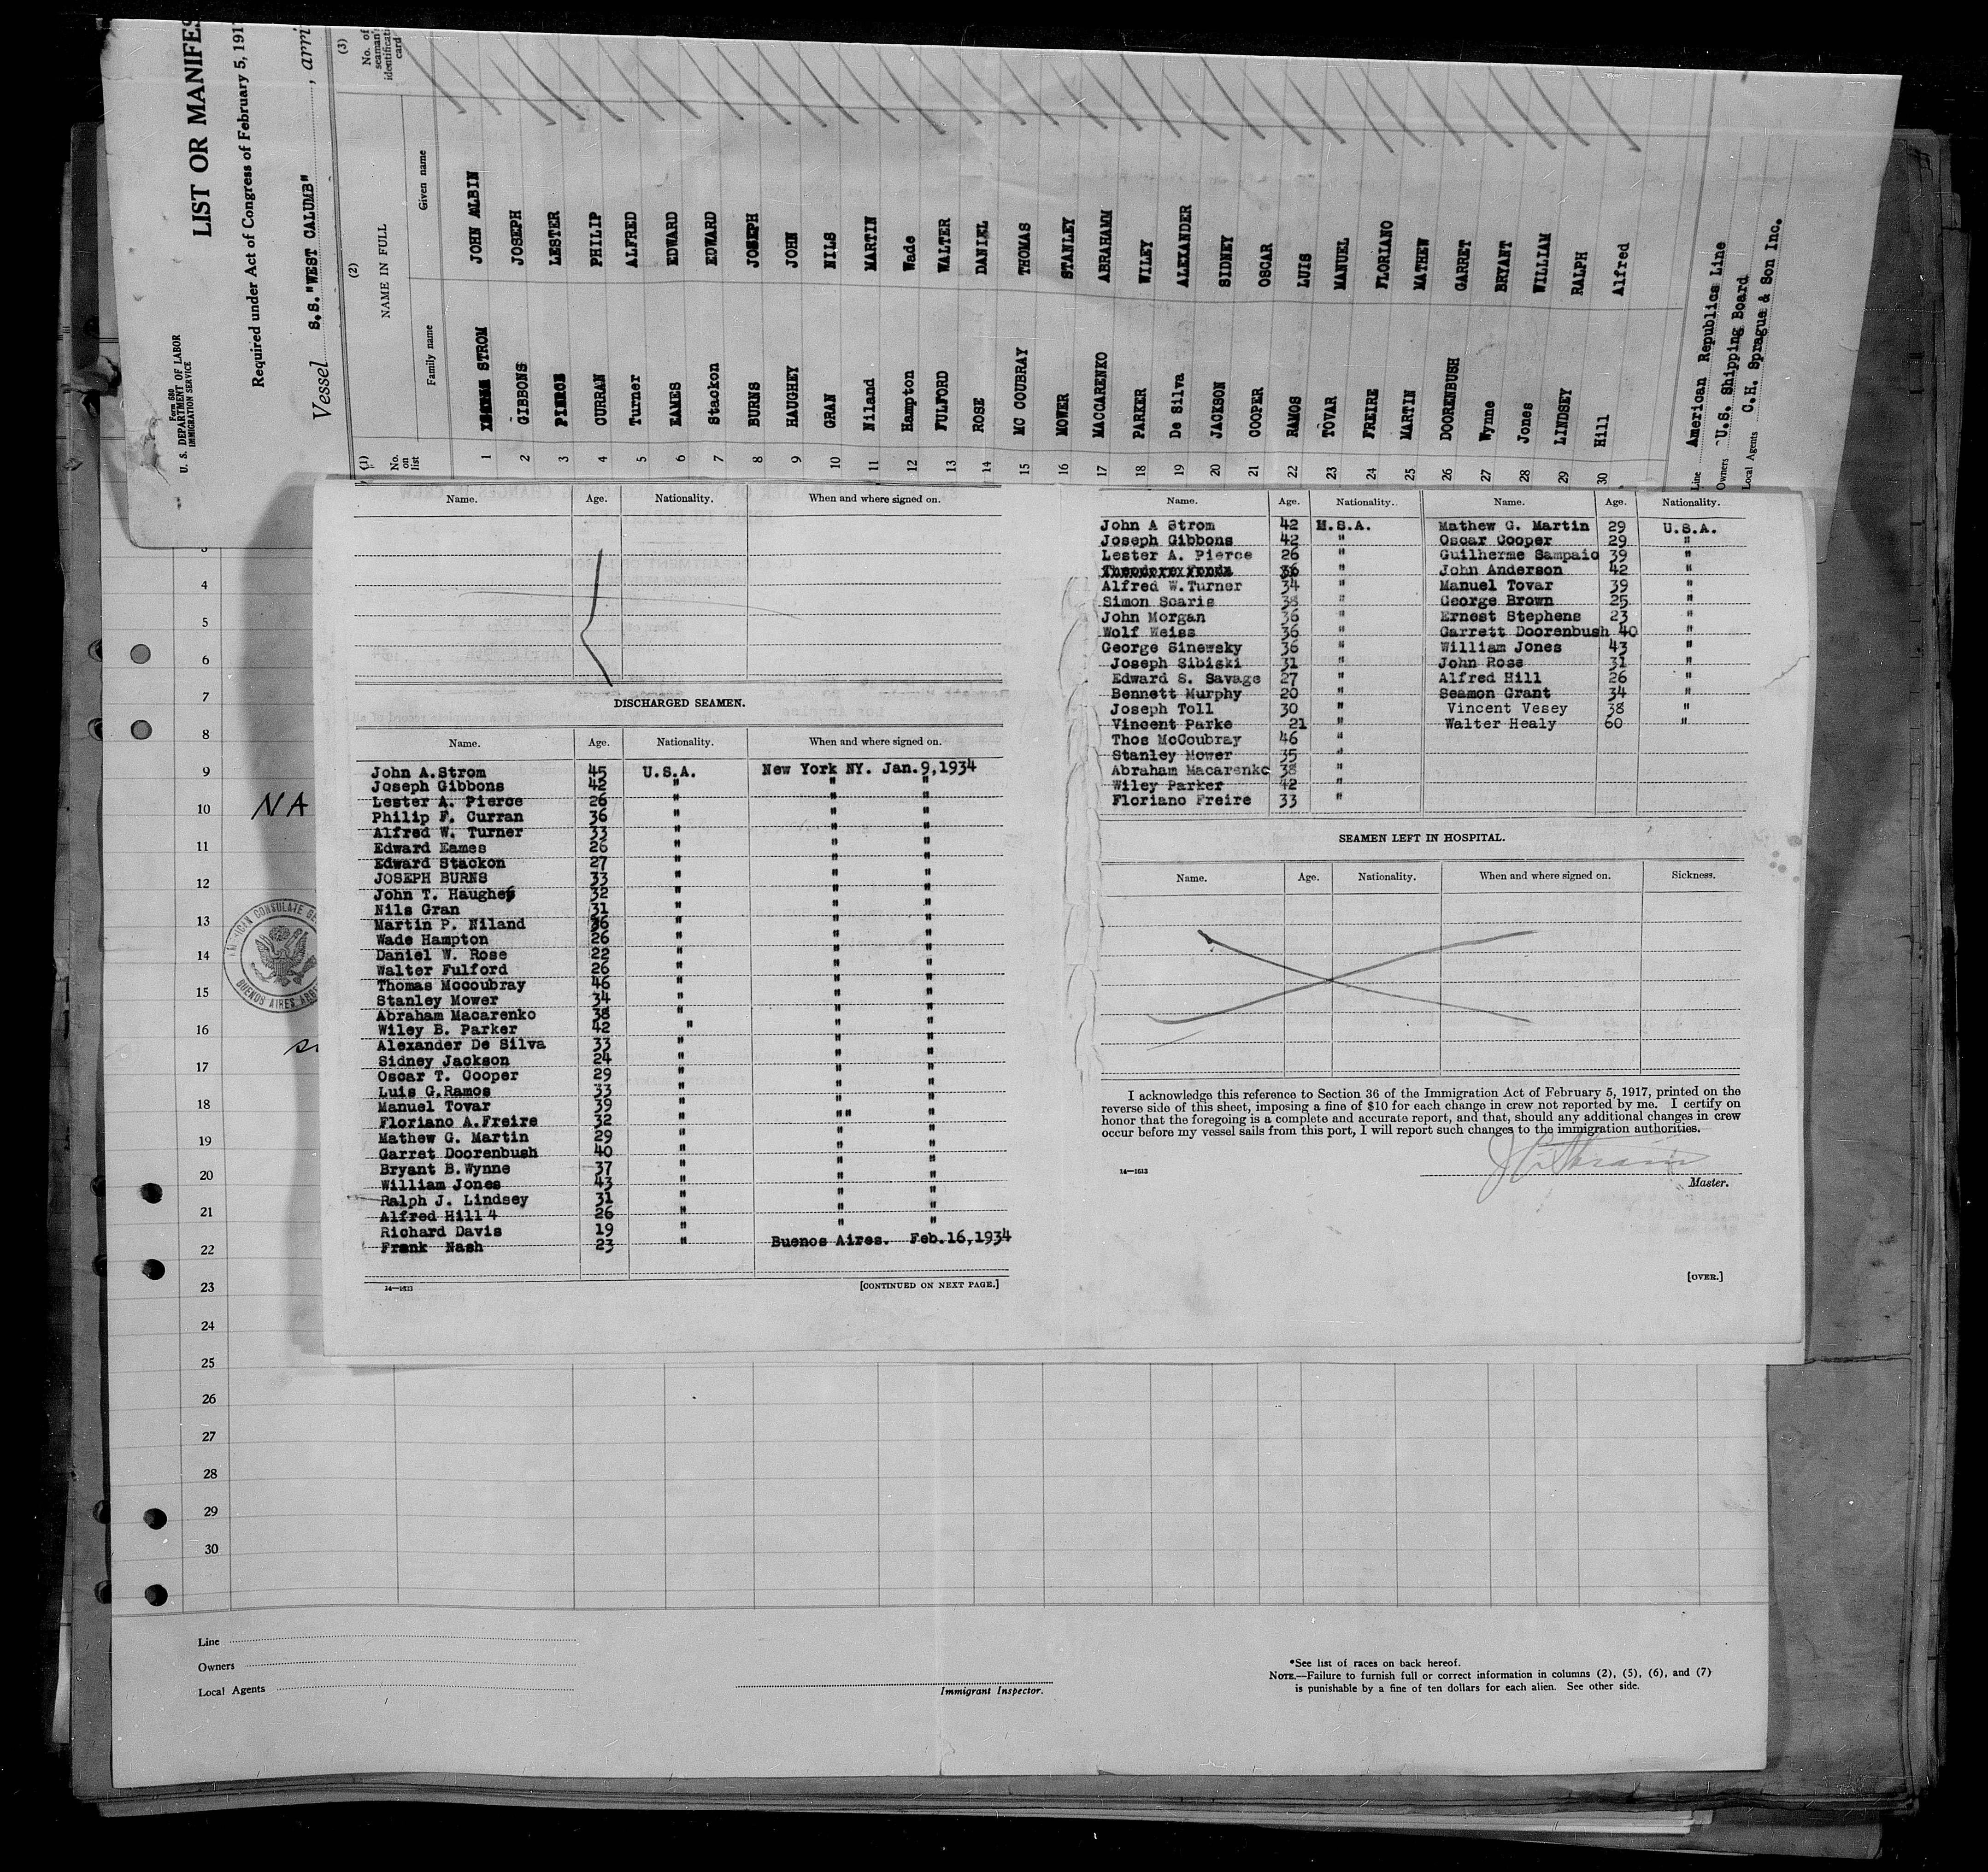 Form 680
U. S. DEPARTMENT OF LABOR
IMMIGRATION SERVICE
LIST OR MANIFES
Required under Act of Congress of February 5, 191
Vessel S.S."WEST CALUMB" , arri
(1) (2) (3)
No. on list
NAME IN FULL
No. of seaman's identificati card
Family name Given name
1 STROM JOHN ALBIN
2 GIBBONS JOSEPH
3 PIERCE LESTER
4 CURRAN PHILIP
5 Turner ALFRED
6 EAMES EDWARD
7 Stackon EDWARD
8 BURNS JOSEPH
9 HAUGHEY JOHN
10 GRAN NILS
11 Niland MARTIN
12 Hampton Wade
13 FULFORD WALTER
14 ROSE DANIEL
15 MC COUBRAY THOMAS
16 MOWER STANLEY
17 MACCARENKO ABRAHAMM
18 PARKER WILEY
19 De Silva ALEXANDER
20 JACKSON SIDNEY
21 COOPER OSCAR
22 RAMOS LUIS
23 TOVAR MANUEL
24 FREIRE FLORIANO
25 MARTIN MATHEW
26 DOORENBUSH GARRET
27 Wynne BRYANT
28 Jones WILLIAM
29 LINDSEY RALPH
30 Hill Alfred
Line American Republics Line
Owners U.S. Shipping Board
Local Agents C.H. Sprague & Son Inc.
Name. Age. Nationality. When and where signed on.
DISCHARGED SEAMEN.
Name. Age. Nationality. When and where signed on.
John A.Strom 45 U.S.A. New York NY. Jan.9,1934
Joseph Gibbons 42 " " "
Lester A. Pierce 26 " " "
Philip F. Curran 36 " " "
Alfred W. Turner 33 " " "
Edward Eames 26 " " "
Edward Stackon 27 " " "
JOSEPH BURNS 33 " " "
John T. Haughey 32 " " "
Nils Gran 31 " " "
Martin P. Niland 36 " " "
Wade Hampton 26 " " "
Daniel W. Rose 22 " " "
Walter Fulford 26 " " "
Thomas Mccoubray 46 " " "
Stanley Mower 34 " " "
Abraham Macarenko 38 " " "
Wiley B. Parker 42 " " "
Alexander De Silva 33 " " "
Sidney Jackson 24 " " "
Oscar T. Cooper 29 " " "
Luis G.Ramos 33 " " "
Manuel Tovar 39 " " "
Floriano A.Freire 32 " "" "
Mathew G. Martin 29 " " "
Garret Doorenbush 40 " " "
Bryant B.Wynne 37 " " "
William Jones 43 " " "
Ralph J. Lindsey 31 " " "
Alfred Hill 4 26 " " "
Richard Davis 19 " " "
Frank Nash 23 " Buenos Aires. Feb.16,1934
14—1513 [CONTINUED ON NEXT PAGE.]
Name. Age. Nationality. Name. Age. Nationality.
John A Strom 42 U.S.A. Mathew G. Martin 29 U.S.A.
Joseph Gibbons 42 " Oscar Cooper 29 "
Lester A. Pierce 26 " Guilherme Sampaio 39 "
Theodore Fonda 36 " John Anderson 42 "
Alfred W.Turner 34 " Manuel Tovar 39 "
Simon Scaris 38 " George Brown 25 "
John Morgan 36 " Ernest Stephens 23 "
Wolf Weiss 36 " Garrett Doorenbush 40 "
George Sinewsky 36 " William Jones 43 "
Joseph Sibiski 31 " John Rose 31 "
Edward S. Savage 27 " Alfred Hill 26 "
Bennett Murphy 20 " Seamon Grant 34 "
Joseph Toll 30 " Vincent Vesey 38 "
Vincent Parke 21 " Walter Healy 60 "
Thos McCoubray 46 "
Stanley Mower 35 "
Abraham Macarenko 38 "
Wiley Parker 42 "
Floriano Freire 33 "
SEAMEN LEFT IN HOSPITAL.
Name. Age. Nationality. When and where signed on. Sickness.
I acknowledge this reference to Section 36 of the Immigration Act of February 5, 1917, printed on the
reverse side of this sheet, imposing a fine of $10 for each change in crew not reported by me. I certify on
honor that the foregoing is a complete and accurate report, and that, should any additional changes in crew
occur before my vessel sails from this port, I will report such changes to the immigration authorities.
14—1513
Master.
[OVER.]
4
5
6
7
8
9
10 NA
11
12
13
14
15
16
17
18
19
20
21
22
23
24
25
26
27
28
29
30
AMERICAN CONSULATE GE
BUENOS AIRES ARGE
Line
Owners
Local Agents
Immigrant Inspector.
*See list of races on back hereof.
NOTE.—Failure to furnish full or correct information in columns (2), (5), (6), and (7)
is punishable by a fine of ten dollars for each alien. See other side.